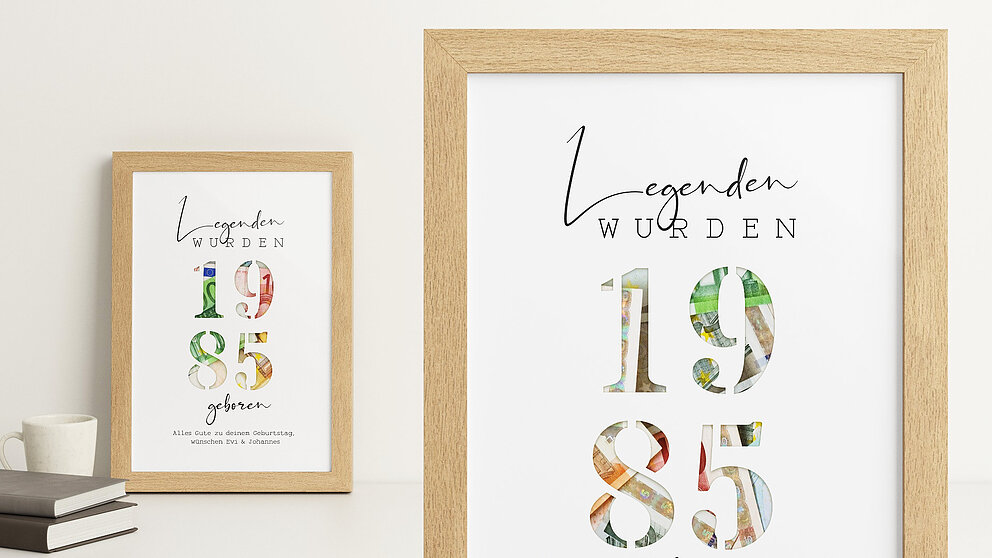 Legenden
WURDEN
19
85
geboren
Alles Gute zu deinem Geburtstag,
wünschen Evi & Johannes
Legenden
WURDEN
19
85